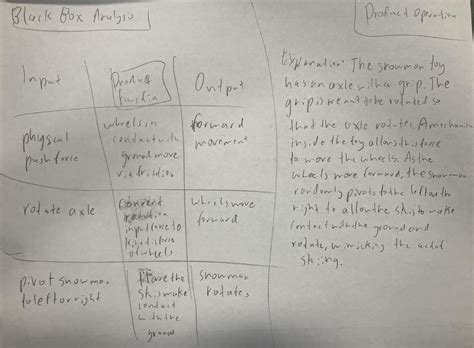 Black Box Analysis
Input
Product
Function
Output
physical
push force
wheels in
contact with
ground move
via friction
forward
movement
rotate axle
convert
rotation
input (axle to
of wheels
wheels move
forward
pivot snowman
to left or right
have the
skis make
contact
with the
ground
snowman
rotates
Product Operation
Explanation: The snowman toy
has an axle with a grip. The
grip is meant to be rotated so
that the axle rotates. A mechanism
inside the toy allows this force
to move the wheels. As the
wheels move forward, the snowman
randomly pivots to the left or the
right to allow the skis to make
contact with the ground and
rotate, mimicking the act of
skiing.